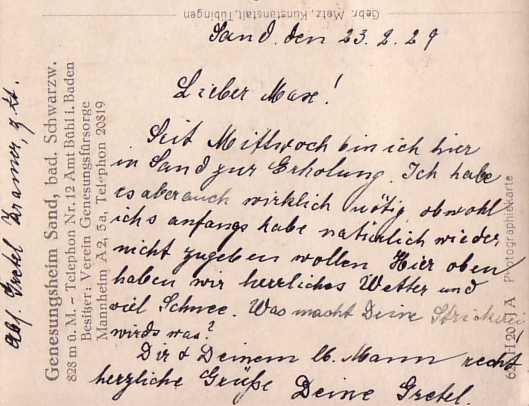 Gebr. Metz, Kunstanstalt, Tübingen
Sand, den 23. 2. 29
Lieber Maxe!
Seit Mittwoch bin ich hier
in Sand zur Erholung. Ich habe
es aber auch wirklich nötig, obwohl
ichs anfangs habe natürlich wieder
nicht zugeben wollen Hier oben
haben wir herrliches Wetter und
viel Schnee. Was macht Deine Strickerei
wirds was?
Dir & Deinem lb. Mann recht
herzliche Grüße Deine Gretel.
Abs. Gretel Kramer, z. Zt.
Genesungsheim Sand, bad. Schwarzw.
828 m ü. M. – Telephon Nr. 12 Amt Bühl i. Baden
Besitzer: Verein Genesungsfürsorge
Mannheim A 2, 5a, Telephon 20819
Photographiekarte